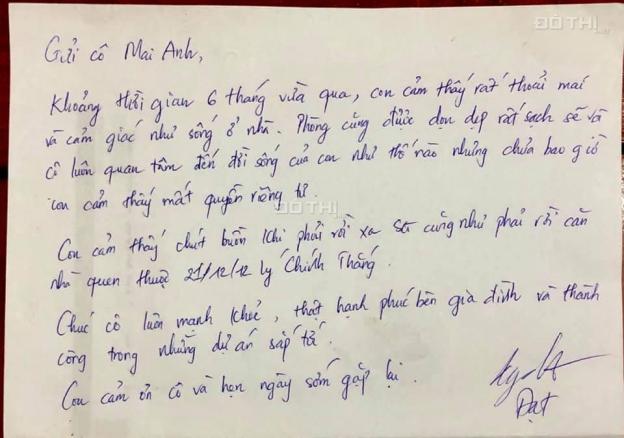 ĐÔ THỊ
Gửi cô Mai Anh,
Khoảng thời gian 6 tháng vừa qua, con cảm thấy rất thoải mái
và cảm giác như sống ở nhà. Phòng cũng được dọn dẹp rất sạch sẽ và
cô luôn quan tâm đến đời sống của con như thế nào nhưng chưa bao giờ
con cảm thấy mất quyền riêng tư.
ĐÔ THỊ
Con cảm thấy chút buồn khi phải rời xa SG cũng như phải rời căn
nhà quen thuộc 21/12/12 Lý Chính Thắng.
Chúc cô luôn mạnh khỏe, thật hạnh phúc bên gia đình và thành
công trong những dự án sắp tới.
Con cảm ơn cô và hẹn ngày sớm gặp lại.
Đạt